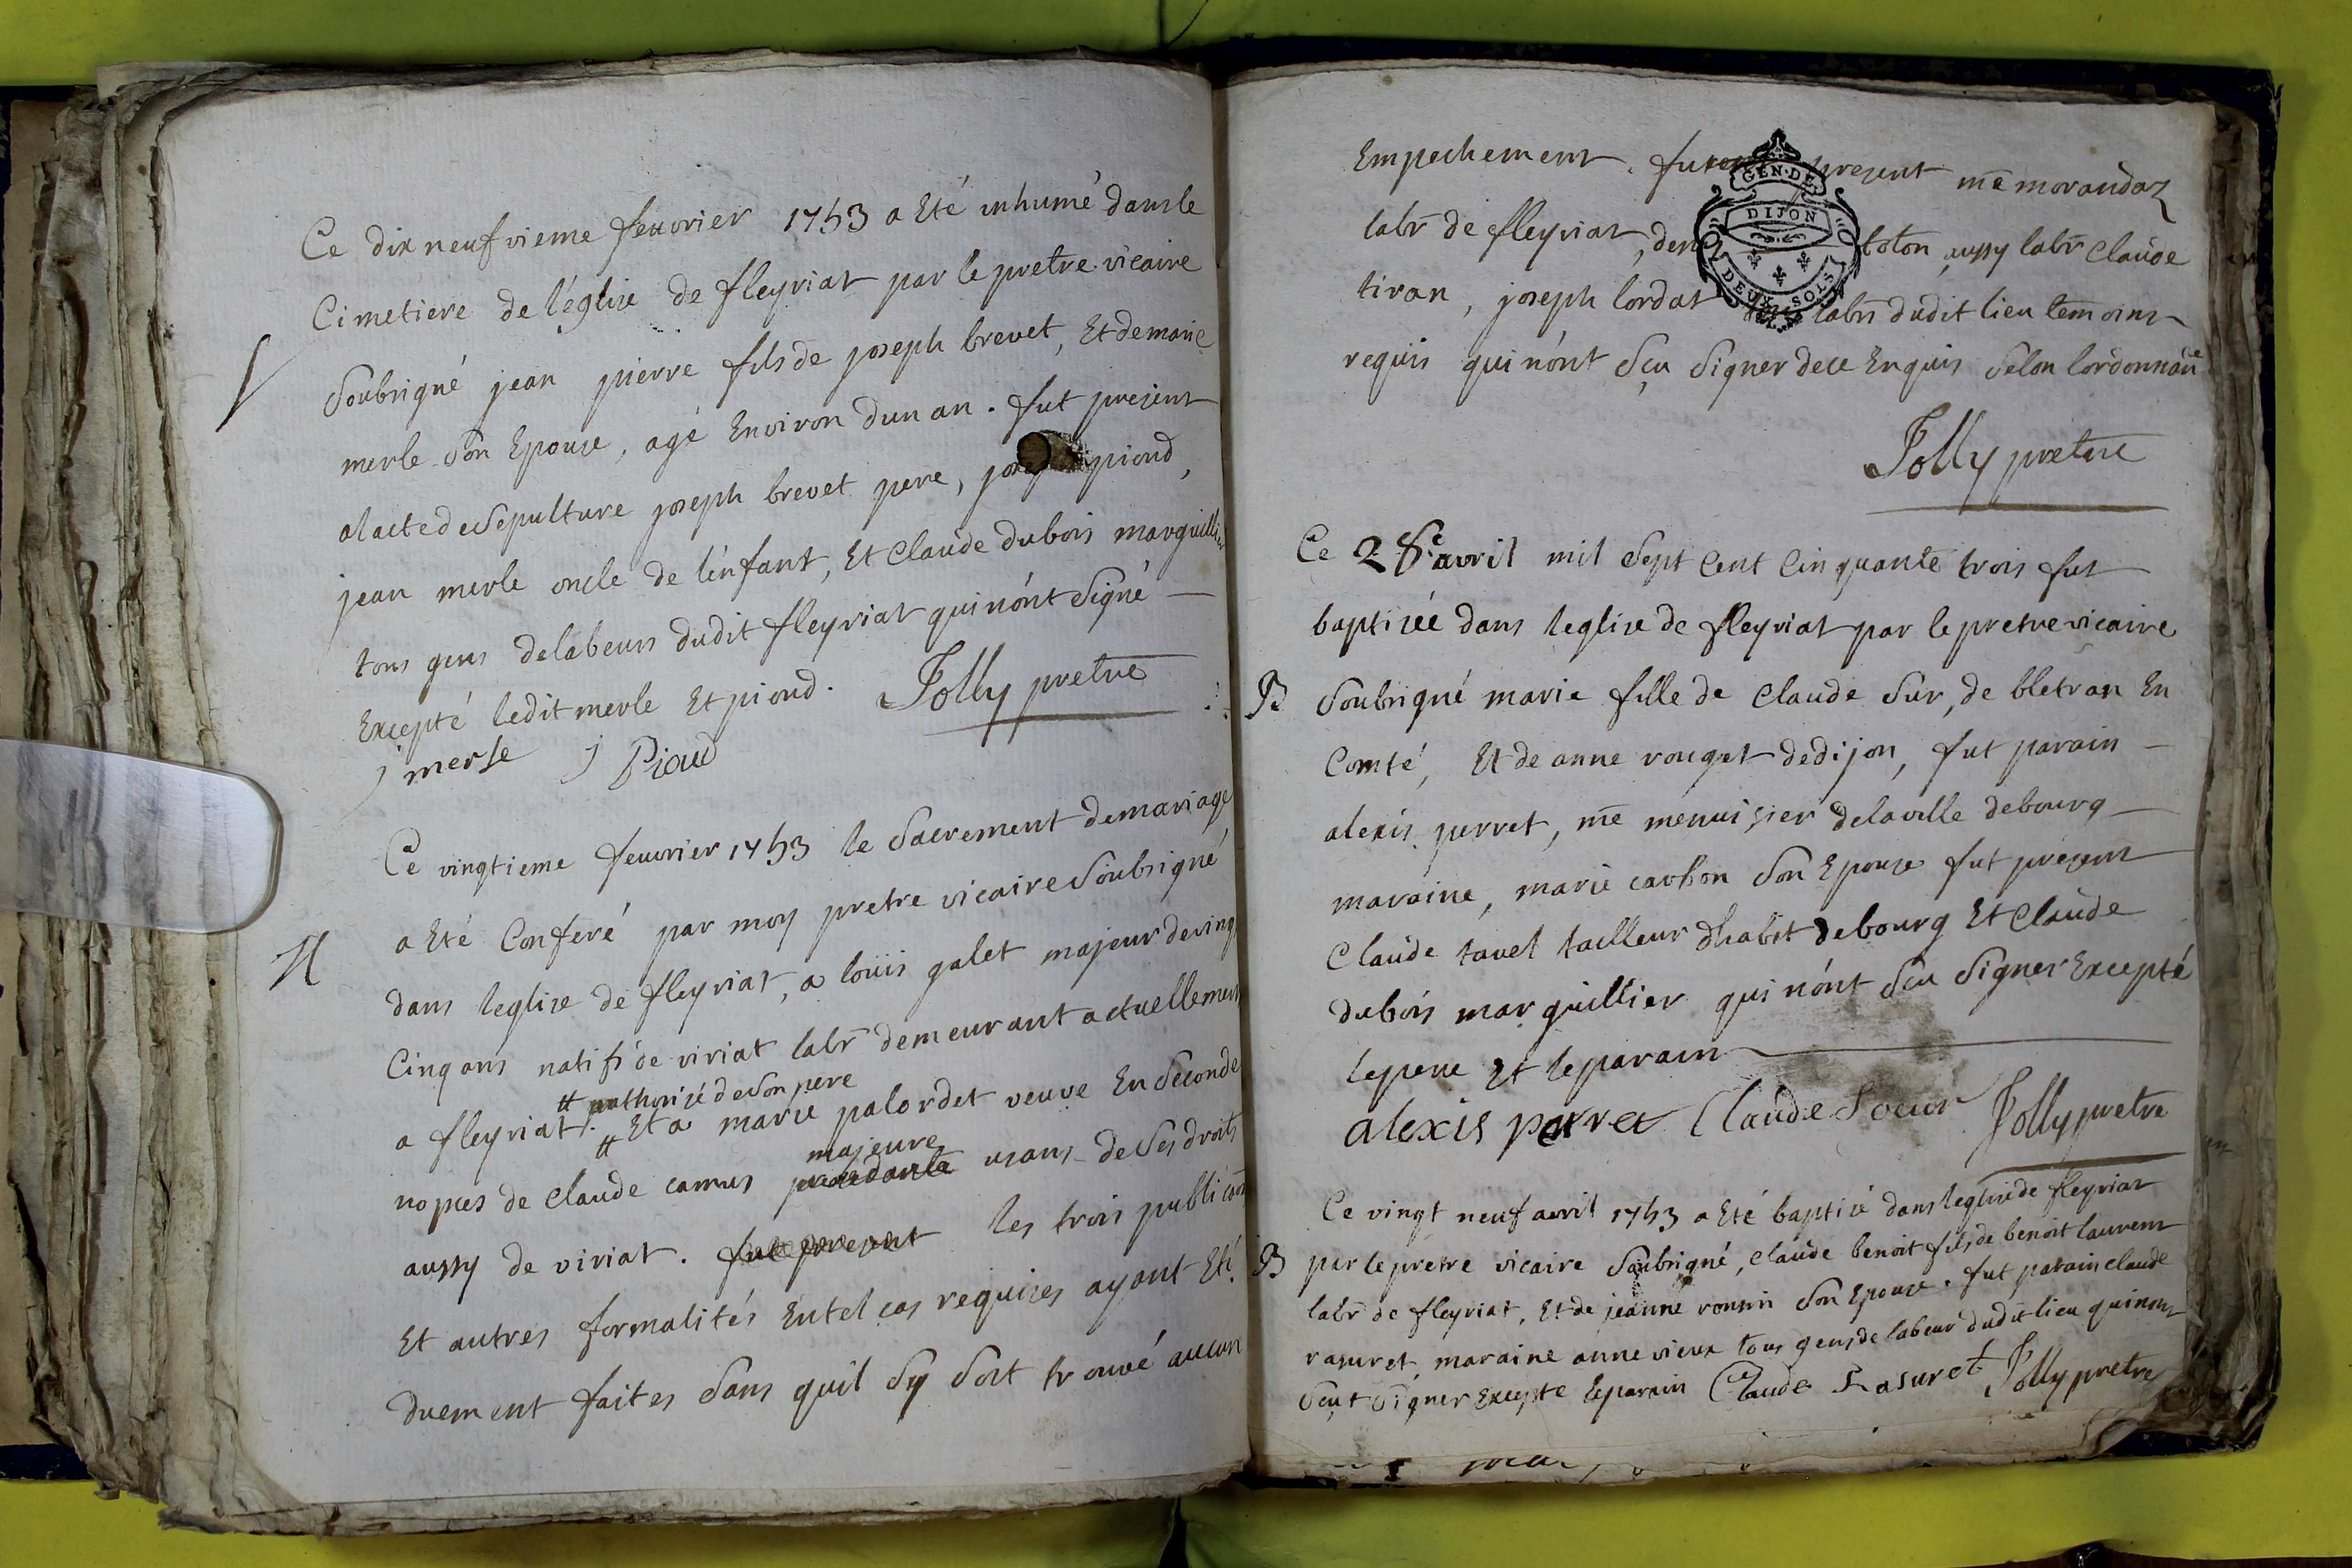 Ce dix neufvieme feuvrier 1753 a Eté inhumé dans le
Cimetiere de l'église de fleyriat par le pretre vicaire
Soubsigné jean pierre fils de joseph brevet, Et de marie
merle Son Epouse, agé Environ d'un an. fut present
a lacte de Sepulture joseph brevet pere, piond,
jean merle oncle de l'enfant, Et Claude dubois marguillier
tous gens de labeurs dudit fleyriat qui nónt Signé
Excepté ledit merle Et piond. Jolly pretre
j merle j Pioud
Ce vingtieme feuvrier 1753 le Sacrement de mariage
M a Eté Conferé par moy pretre vicaire Soubsigné
dans leglise de fleyriat, a loüis galet majeur de ving
Cinq ans natif de viriat labr demeurant actuellement
# authorisé de Son pere
a fleyriat. # Et a marie palordet veuve En Seconde
majeure
nopces de Claude camus usans de Ses droits
aussy de viriat. fut present les trois publicaõns
Et autres formalités En tel cas requises ayant Eté
duement faites Sans quil Sy Soit trouvé aucun
Empechement. furent present me morandaz
labr de fleyriat, loton aussy labr Claude
tiran, joseph lordat labrs dudit lieu temoins
requis qui nónt Sçu Signer de ce Enquis Selon lordonnãce
Jolly pretre
Ce 28e avril mil Sept Cent Cinquante trois fut
baptisée dans leglise de fleyriat par le pretre vicaire
B Soubsigné marie fille de Claude Sur, de bletran En
Comté, Et de anne rouget de dijon, fut parain
alexis perret, me menuisier de la ville de bourg
maraine, marie carbon Son Epouse fut present
Claude tavel tailleur d'habit de bourg Et Claude
dubois marguillier qui nónt Scu Signer Excepté
le pere Et le parain
alexis perret Claude Soeur Jolly pretre
Ce vingt neuf avril 1753 a Eté baptisé dans leglise de fleyriat
B par le pretre vicaire Soubsigné, Claude benoit fils de benoit laurent
labr de fleyriat, Et de jeanne ronsin Son Epouse. fut parain claude
rasuret, maraine anne vieux tous gens de labeur dudit lieu qui nont
Scut Signer Excepte le parain Claude Rasuret Jolly pretre
GEN. DE
DIJON
DEUX SOLS